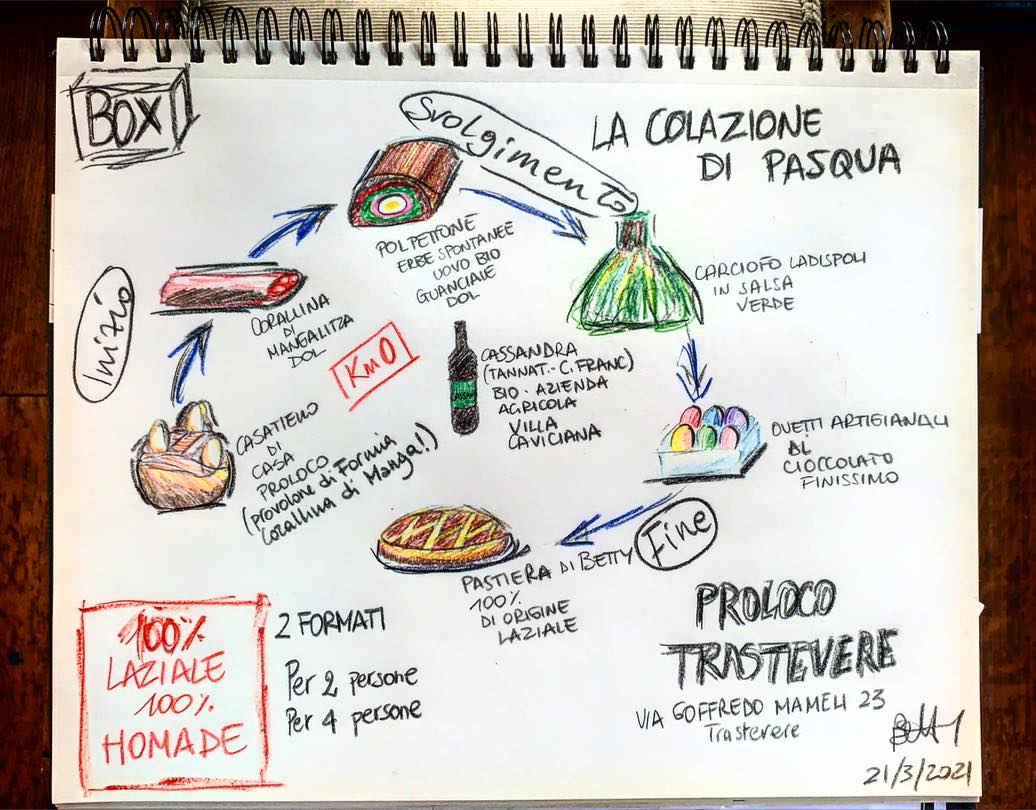 BOX
LA COLAZIONE
DI PASQUA
Svolgimento
POLPETTONE
ERBE SPONTANEE
UOVO BIO
GUANCIALE
DOL
CARCIOFO LADISPOLI
IN SALSA
VERDE
Inizio
CORALLINA
DI
MANGALITZA
DOL
Km0
CASSANDRA
(TANNAT - C. FRANC)
BIO - AZIENDA
AGRICOLA
VILLA
CAVICIANA
CASATIELLO
DI
CASA
PROLOCO
(provolone di Formia
Corallina di Manga!)
OVETTI ARTIGIANALI
AL
CIOCCOLATO
FINISSIMO
Fine
PASTIERA DI BETTY
100%
DI ORIGINE
LAZIALE
100%
LAZIALE
100%
HOMADE
2 FORMATI
Per 2 persone
Per 4 persone
PROLOCO
TRASTEVERE
VIA GOFFREDO MAMELI 23
Trastevere
Betty
21/3/2021